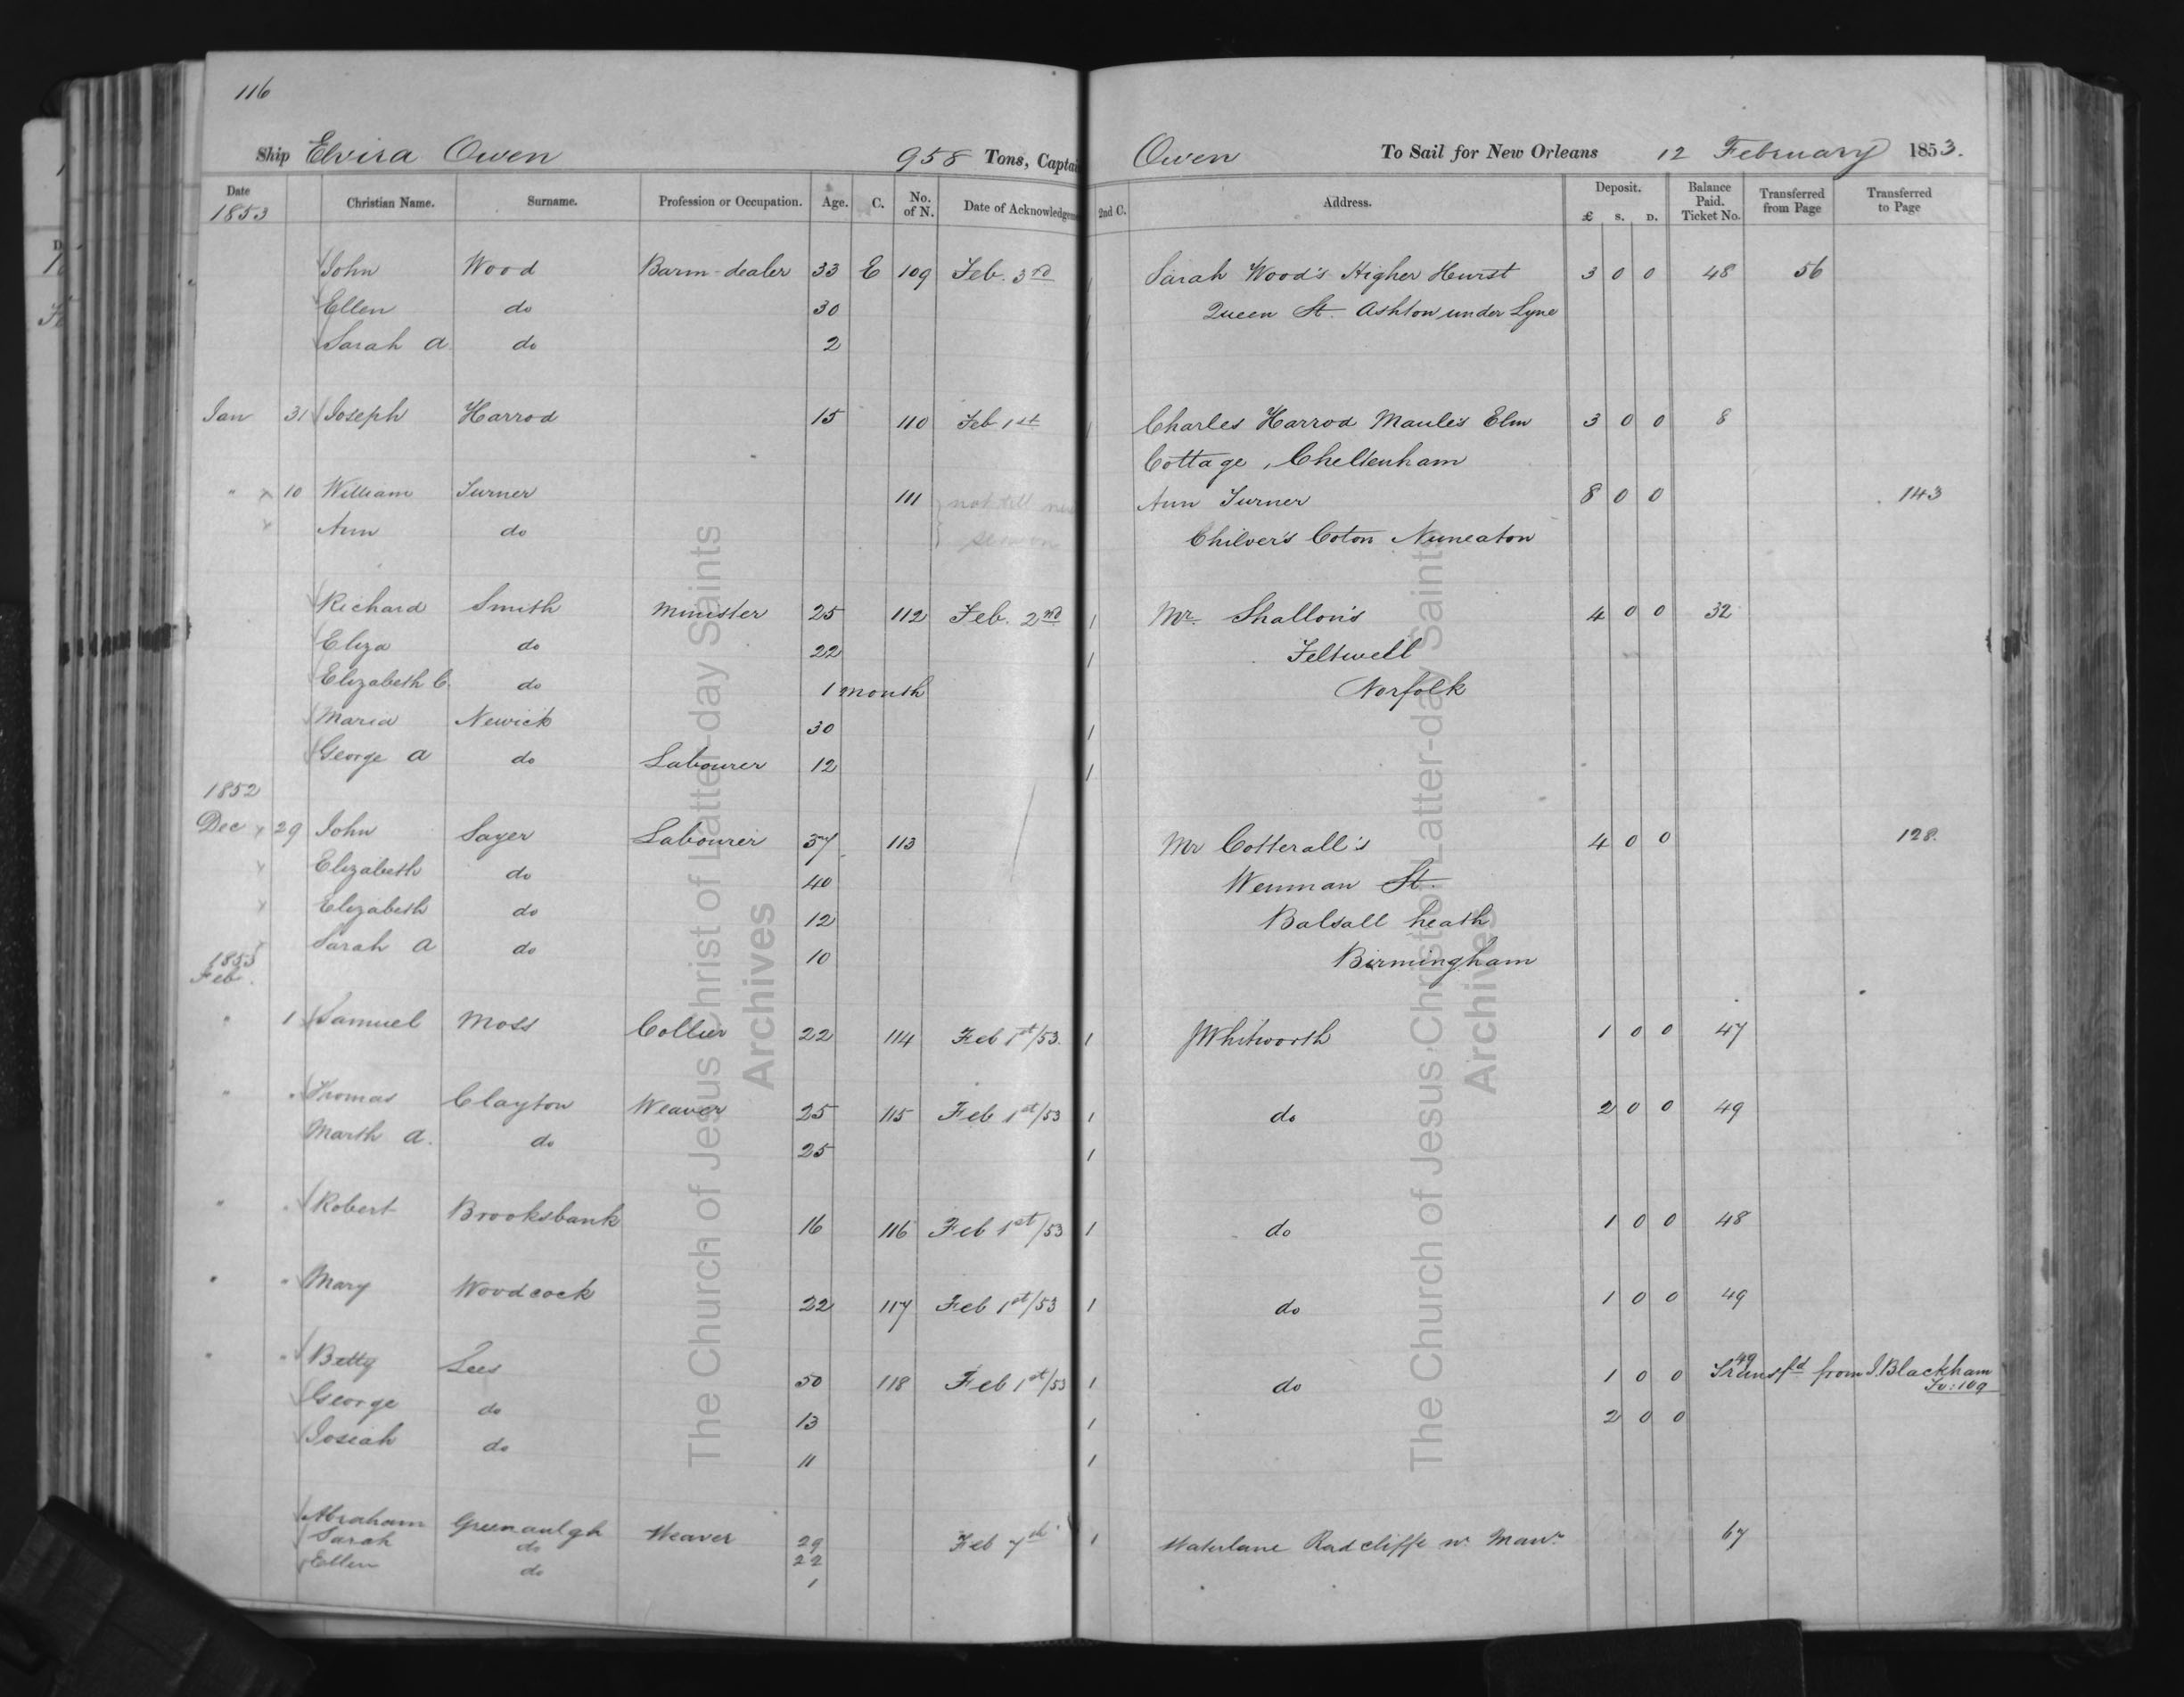 116
Ship Elvira Owen 958 Tons, Captai Owen To Sail for New Orleans 12 February 1853.
Date 1853 Christian Name. Surname. Profession or Occupation. Age. C. No. of N. Date of Acknowledgeme 2nd C. Address. Deposit. £ S. D. Balance Paid. Ticket No. Transferred from Page Transferred to Page
John Wood Barm-dealer 33 E 109 Feb. 3rd Sarah Wood's Higher Hurst 3 0 0 48 56
Ellen do 30 Queen St. Ashton under Lyne
Sarah A. do 2
Jan 31 Joseph Harrod 15 110 Feb 1st Charles Harrod Maule's Elm 3 0 0 8
Cottage, Cheltenham
" 10 William Turner 111 not till Ann Turner 8 0 0 143
Ann do Chilver's Coton Nuneaton
Richard Smith Minister 25 112 Feb. 2nd 1 Mr. Shallon's 4 0 0 32
Eliza do 22 1 Feltwell
Elizabeth C. do 1 month Norfolk
Maria Newick 30 1
George A do Labourer 12 1
1852
Dec 29 John Sayer Labourer 37 113 Mr Cotterall's 4 0 0 128.
Elizabeth do 40 Wenman St.
Elizabeth do 12 Balsall heath
Sarah A do 10 Birmingham
1853
Feb.
" 1 Samuel Moss Collier 22 114 Feb 1st/53 1 J Whitworth 1 0 0 47
" " Thomas Clayton Weaver 25 115 Feb 1st/53 1 do 2 0 0 49
Marth A. do 25 1
" " Robert Brooksbank 16 116 Feb 1st/53 1 do 1 0 0 48
" " Mary Woodcock 22 117 Feb 1st/53 1 do 1 0 0 49
" " Betty Lees 50 118 Feb 1st/53 1 do 1 0 0 49 Transfd from J. Blackham
Fo: 109
George do 13 1 2 0 0
Josiah do 11 1
Abraham Greenaulgh Weaver 29 Feb 7th 1 Waterlane Radcliffe nr Manr. 67
Sarah do 22
Ellen do 1
The Church of Jesus Christ of Latter-day Saints
Archives
The Church of Jesus Christ of Latter-day Saints
Archives